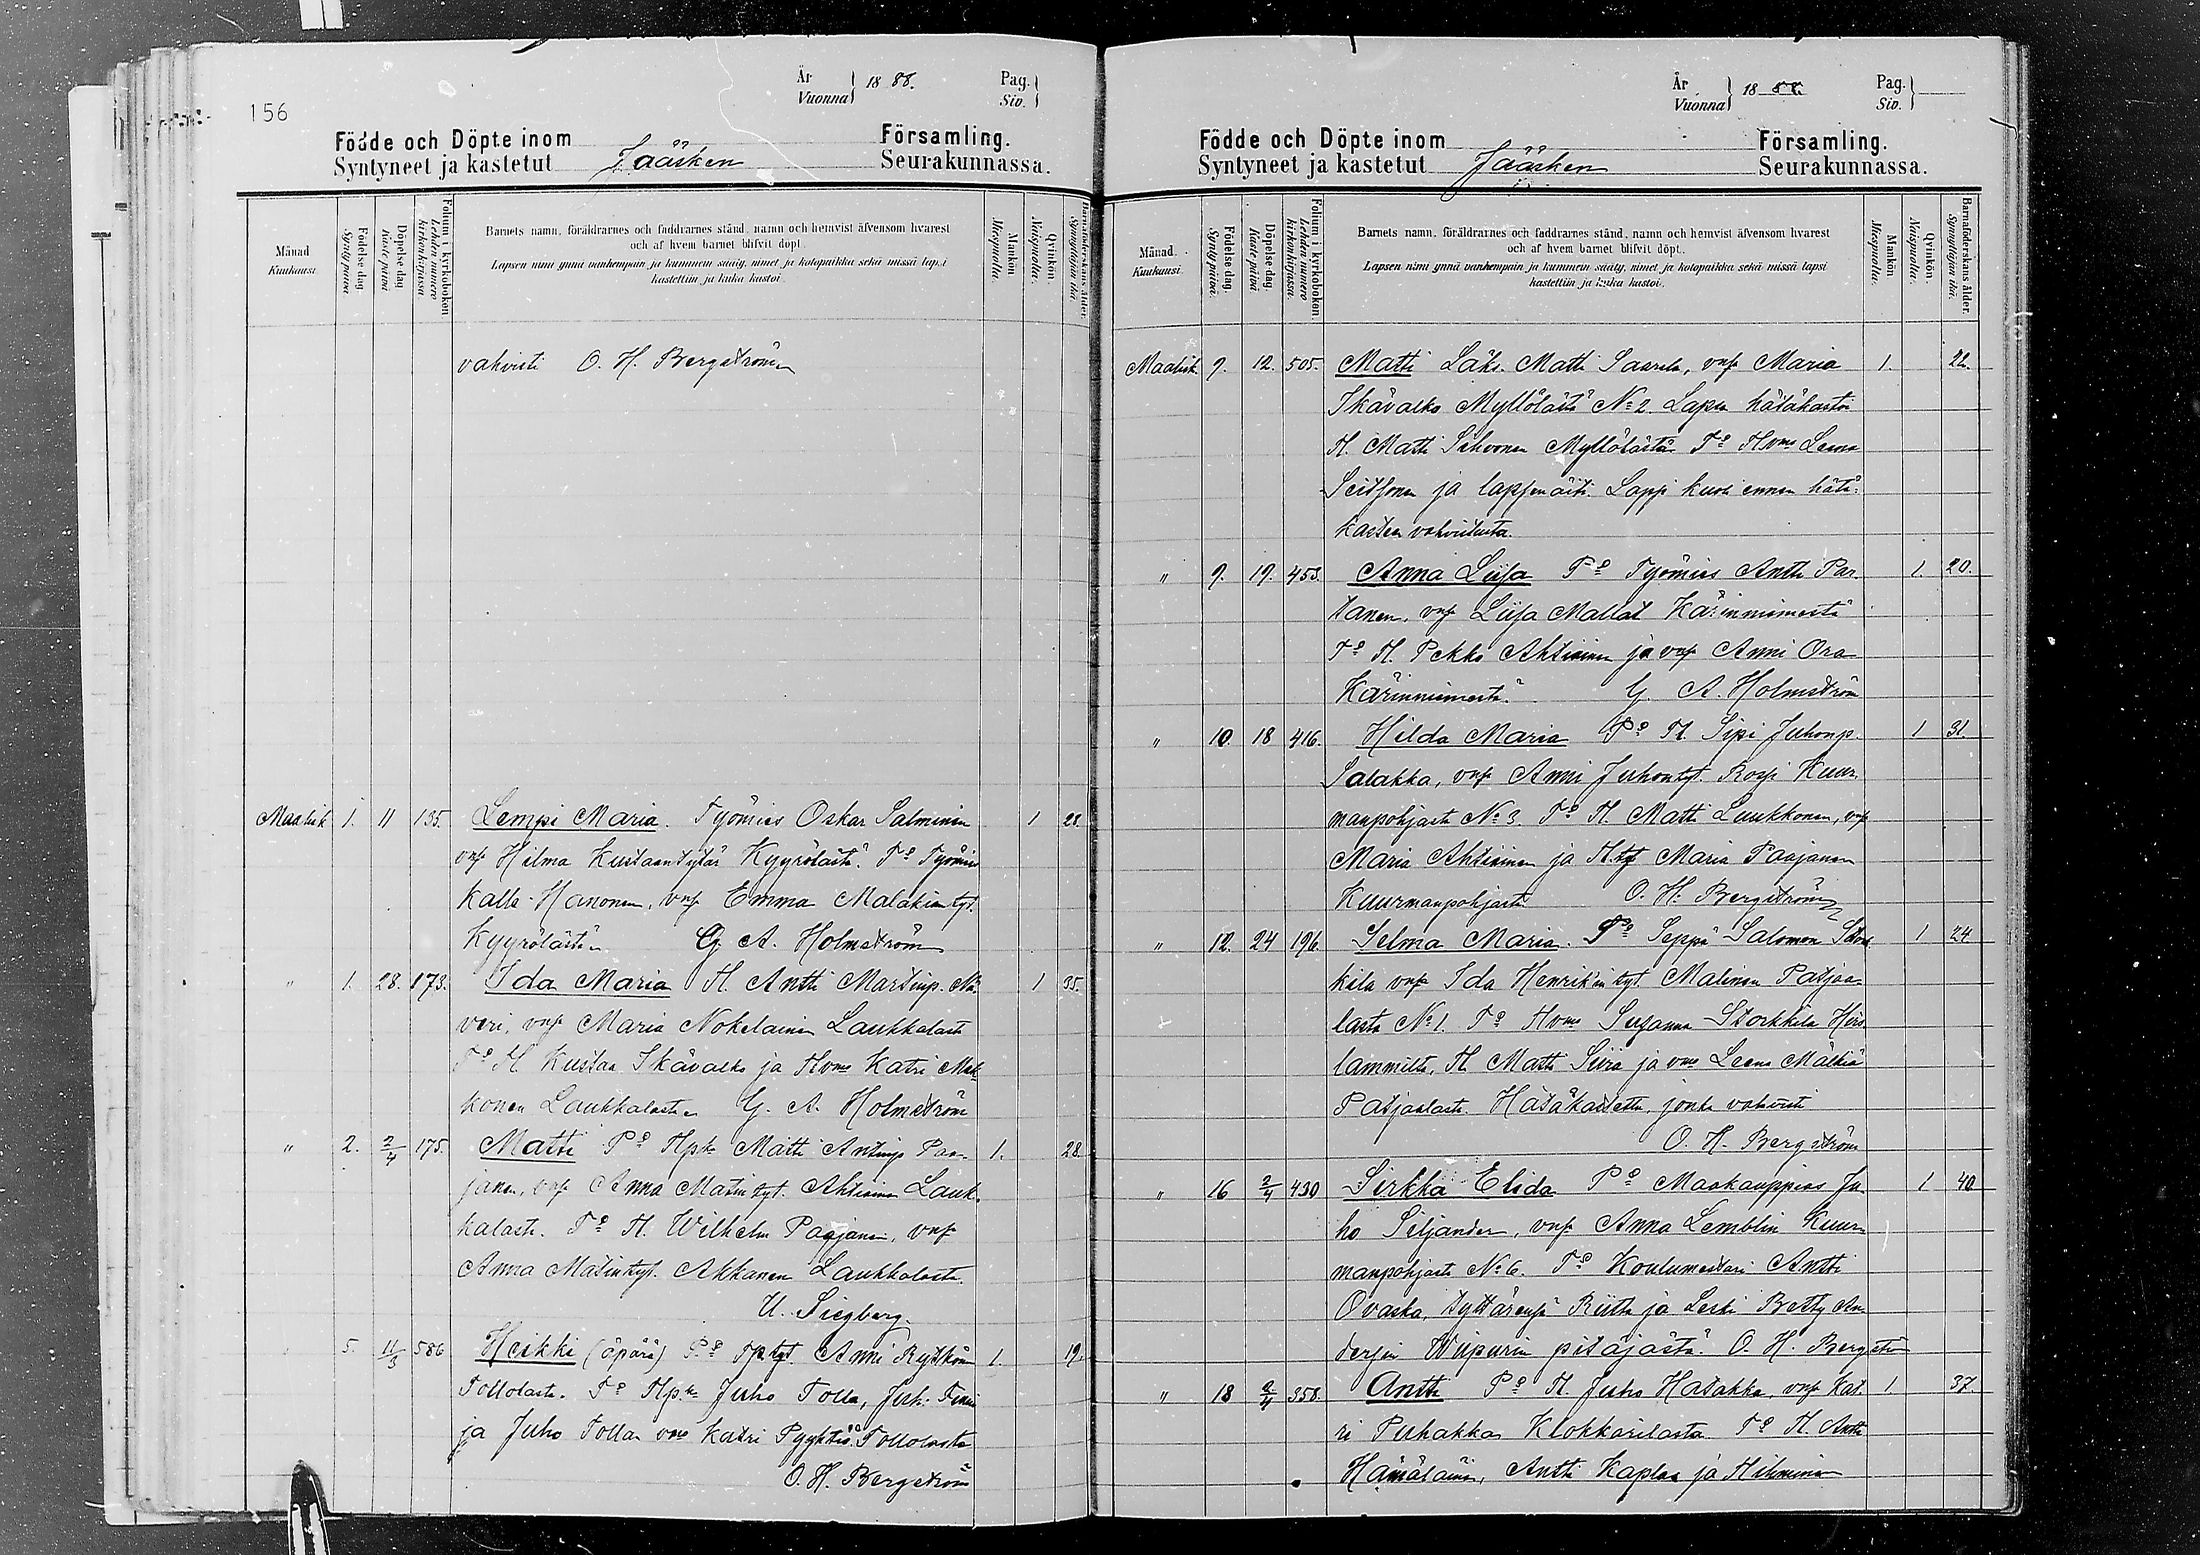 156
År
Vuonna
1888.
Pag.
Siv.
Födde och Döpte inom
Församling.
Syntyneet ja kastetut Jääsken Seurakunnassa.
Månad
Kuukausi
Födelse dag.
Synty päivä.
Döpelse dag
Kaste päivä
Folium i kyrkoboken
Lehden numero kirkonkirjassa
Barnets namn, föräldrarnes och faddrarnes stånd, namn och hemvist äfvensom hvarest
och af hvem barnet blifvit döpt.
Lapsen nimi ynnä vanhempain ja kummein sääty, nimet ja kotopaikka sekä missä lapsi
kastettiin ja kuka kastoi.
Mankön
Miespuolta.
Qvinkön.
Naispuolta.
Barnaföderskans ålder.
Synnyttäjän ikä.
vahvisti O. H. Bergström
Maalisk 1. 11 135. Lempi Maria. Työmies Oskar Salminen 1 28.
vmo Hilma Kustaantytär Kyyrölästä. To Työmies
Kalle Hanonen, vmo Emma Malakiantyt.
Kyyrölästä G. A. Holmström
" 1. 28. 173. Ida Maria Tl. Antti Martinp. 1 35.
veri, vmo Maria Nokelainen Laukkalasta
To Tl Kustaa Skävalko ja Tlvmo Katri Mak-
konen Laukkalasta G. A. Holmström
" 2. 2/4 175. Matti Po Tlpk Matti Antinp Paa- 1. 28.
janen, vmo Anna Matintyt. Ahtiainen Lauk-
kalasta. To Tl. Wilhelm Paajanen, vmo
Anna Matintyt. Akkanen Laukkalasta.
U. Siegberg.
5. 11/3 586 Heikki (äpärä) Po Anni 1. 19.
Tollolasta. To Tlpk Juho Tolla,
ja Juho Tollan vmo Katri Pyyktiä Tollolasta
O. H. Bergström
År
Vuonna
1888.
Pag.
Siv.
Födde och Döpte inom
Församling.
Syntyneet ja kastetut Jääsken Seurakunnassa.
Månad
Kuukausi
Födelse dag.
Synty päivä.
Döpelse dag
Kaste päivä
Folium i kyrkoboken
Lehden numero kirkonkirjassa
Barnets namn, föräldrarnes och faddrarnes stånd, namn och hemvist äfvensom hvarest
och af hvem barnet blifvit döpt.
Lapsen nimi ynnä vanhempain ja kummein sääty, nimet ja kotopaikka sekä missä lapsi
kastettiin ja kuka kastoi.
Mankön
Miespuolta.
Qvinkön.
Naispuolta.
Barnaföderskans ålder.
Synnyttäjän ikä.
Maalisk 9. 12. 505. Matti Läks. Matti Saarela, vmo Maria 1. 22.
Skävalko Myllölästä No 2. Lapsen hätäkastoi
Tl. Matti Sihvonen Myllölästä To Tlvmo Leena
Seitsonen ja lapsenäiti. Lapsi kuoli ennen hätä-
kasteen vahvistusta.
" 9. 19. 453. Anna Liisa Po Työmies Antti Par- 1. 20.
tanen, vmo Liisa Mallat Kärinniemestä
To Tl. Pekka Ahtiainen ja vmo Anni Ora
Kärinniemestä. G. A. Holmström
" 10. 18 416. Hilda Maria Po Tl. Sipi Juhonp. 1 31.
Salakka, vmo Anni Juhontyt. Rossi Kuur-
manpohjasta No 3. To Tl. Matti Luukkonen, vmo
Maria Ahtiainen ja Tltyt Maria Paajanen
Kuurmanpohjasta O. H. Bergström
" 12. 24 196. Selma Maria. Po Seppä Salomon Stork- 1 24
kila vmo Ida Henrikintyt. Malinen Patjaa-
lasta No 1. To Tlvmo Susanna Storkkila Hirs-
lammilta, Tl. Matti Siira ja vmo Leena Mälkiä
Patjaalasta. Hätäkastettu, jonka vahvisti
O. H. Bergström
" 16 2/4 430 Sirkka Elida Po Maakauppias Ju- 1 40
ho Siljander, vmo Anna Lemblin Kuur-
manpohjasta No 6. To Koulumestari Antti
Ovaska, tyttärensä Riitta ja Leski Betty An-
dersin Wiipurin pitäjästä. O. H. Bergström
" 18 2/4 358. Antti Po Tl. Juho Hatakka, vmo Kat- 1. 37.
ri Puhakka Klokkarilasta To Tl. Antti
Hämäläinen, Antti Kaplas ja